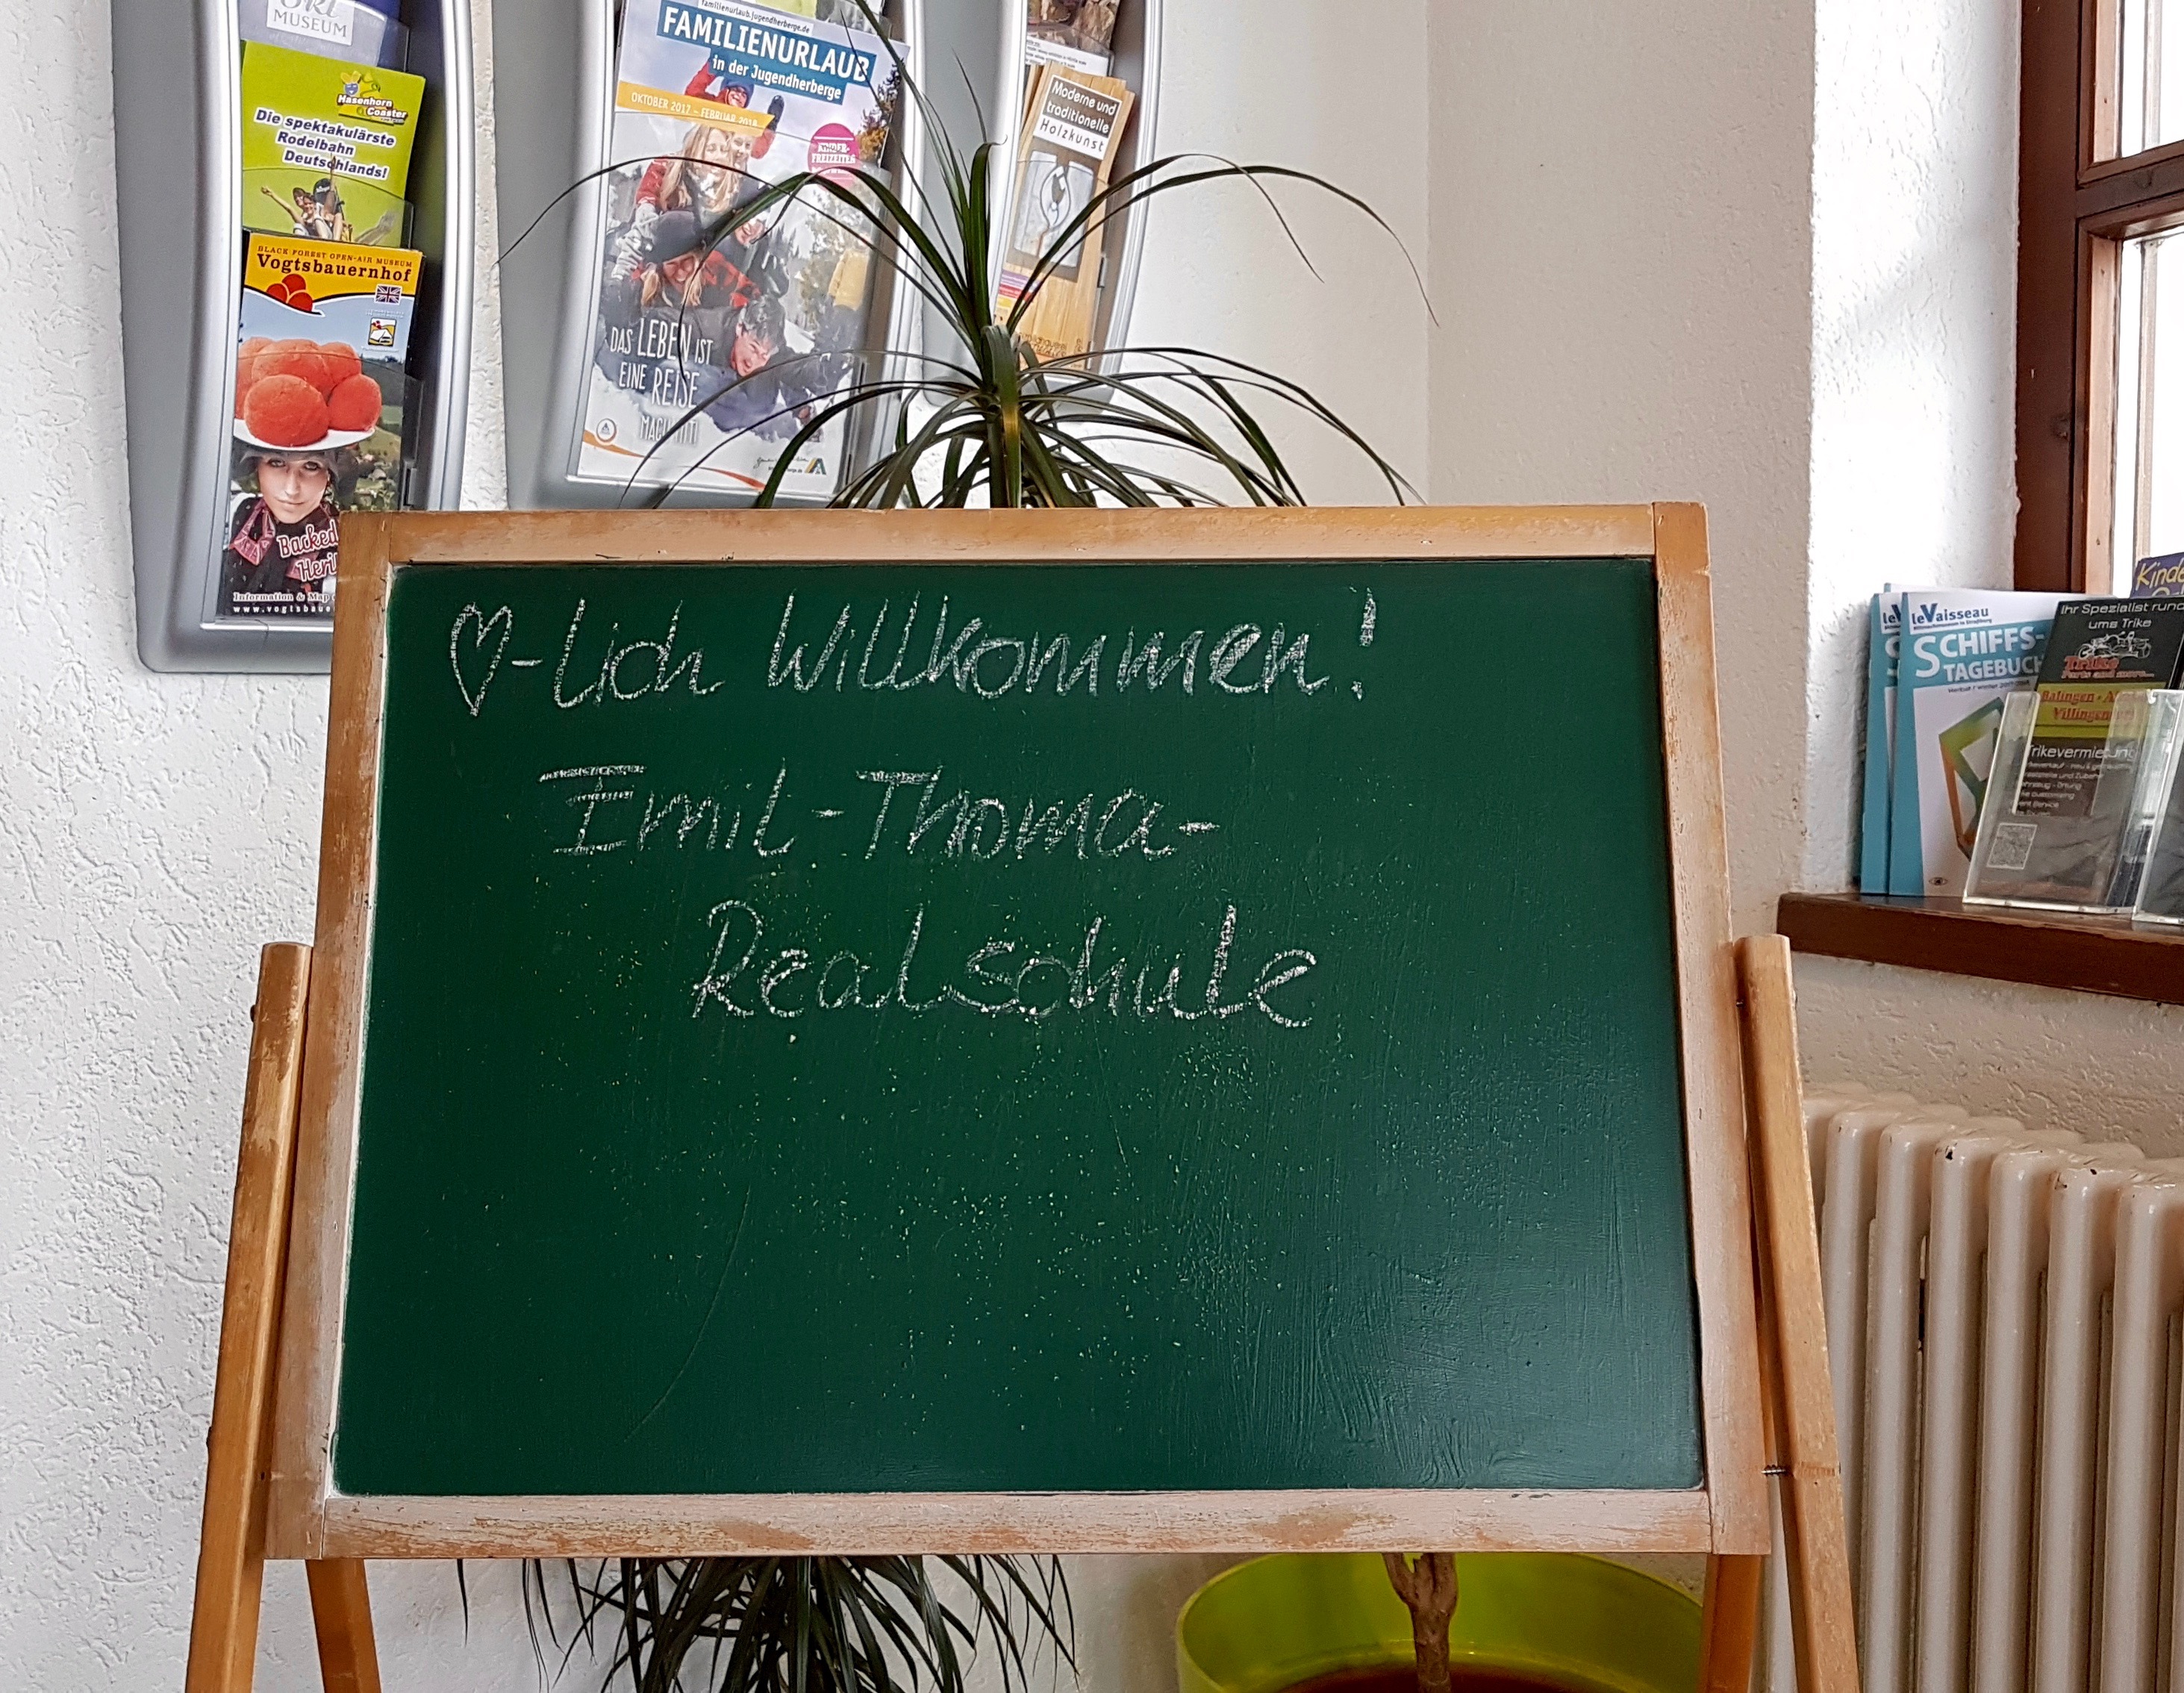 MUSEUM
Hasenhorn
Coaster
Die spektakulärste
Rodelbahn
Deutschlands!
BLACK FOREST OPEN-AIR MUSEUM
Vogtsbauernhof
Backed
Information & Map
familienurlaub.jugendherberge.de
FAMILIENURLAUB
in der Jugendherberge
OKTOBER 2017 – FEBRUAR 2018
KINDER-
FREIZEITEN
DAS LEBEN IST
EINE REISE
MACH MIT!
Moderne und
traditionelle
Holzkunst
♡-lich Willkommen!
Emil-Thoma-
Realschule
leVaisseau
SCHIFFS-
TAGEBUCH
Ihr Spezialist rund
ums Trike
Trike
Parts and more...
Balingen -
Villingen
Trikevermietung